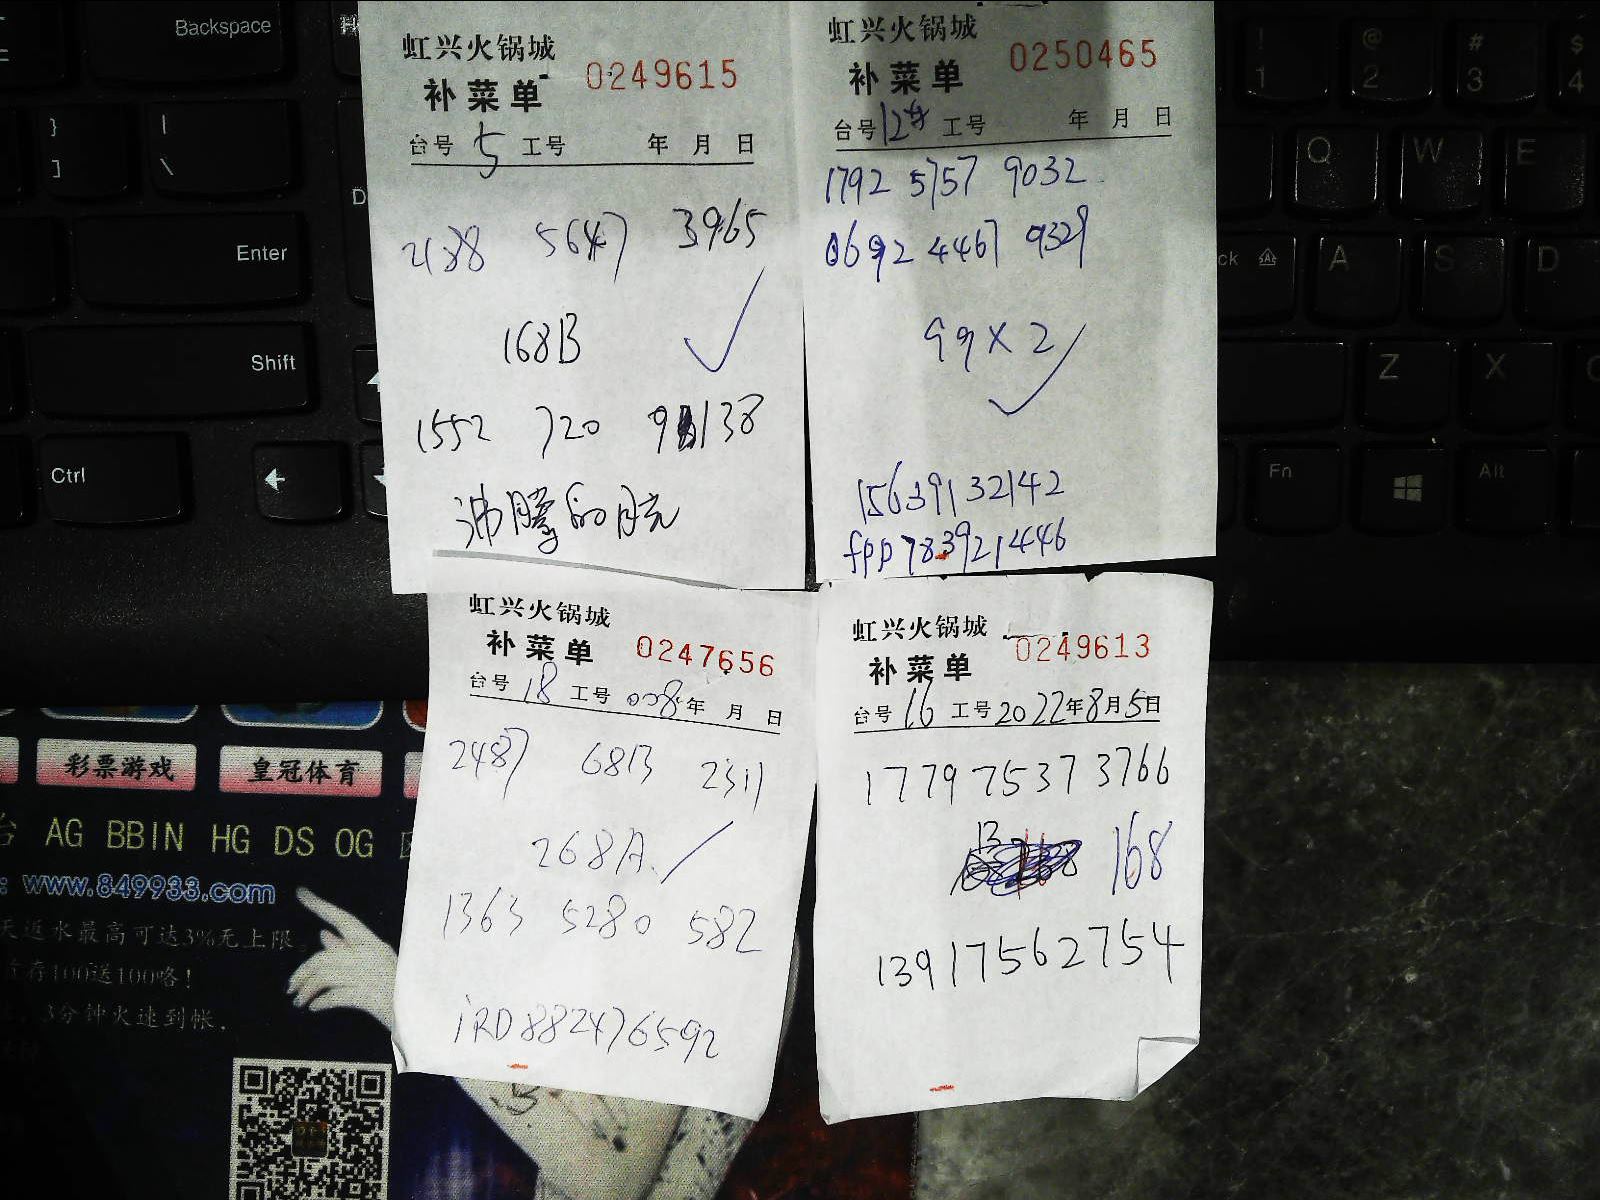 Backspace
Enter
Shift
Ctrl
虹兴火锅城
补菜单 0249615
台号 5 工号 年 月 日
2188 5647 3965
168B
1552 720 9138
沸腾的
虹兴火锅城
补菜单 0250465
台号 12 工号 年 月 日
1792 5757 9032
0692 4467 9329
99X2
15639132142
fpp783921446
虹兴火锅城
补菜单 0247656
台号 18 工号 008 年 月 日
2487 6813 2311
268A
1363 5280 582
iRD882476592
虹兴火锅城
补菜单 0249613
台号 16 工号 2022年8月5日
1779 7537 3766
13 168
13917562754
! @ # $
1 2 3 4
Q W E
A S D
Z X
Fn Alt
彩票游戏 皇冠体育
台 AG BBIN HG DS OG
: www.849933.com
天返水最高可达3%无上限
存100送100咯!
3分钟火速到帐.